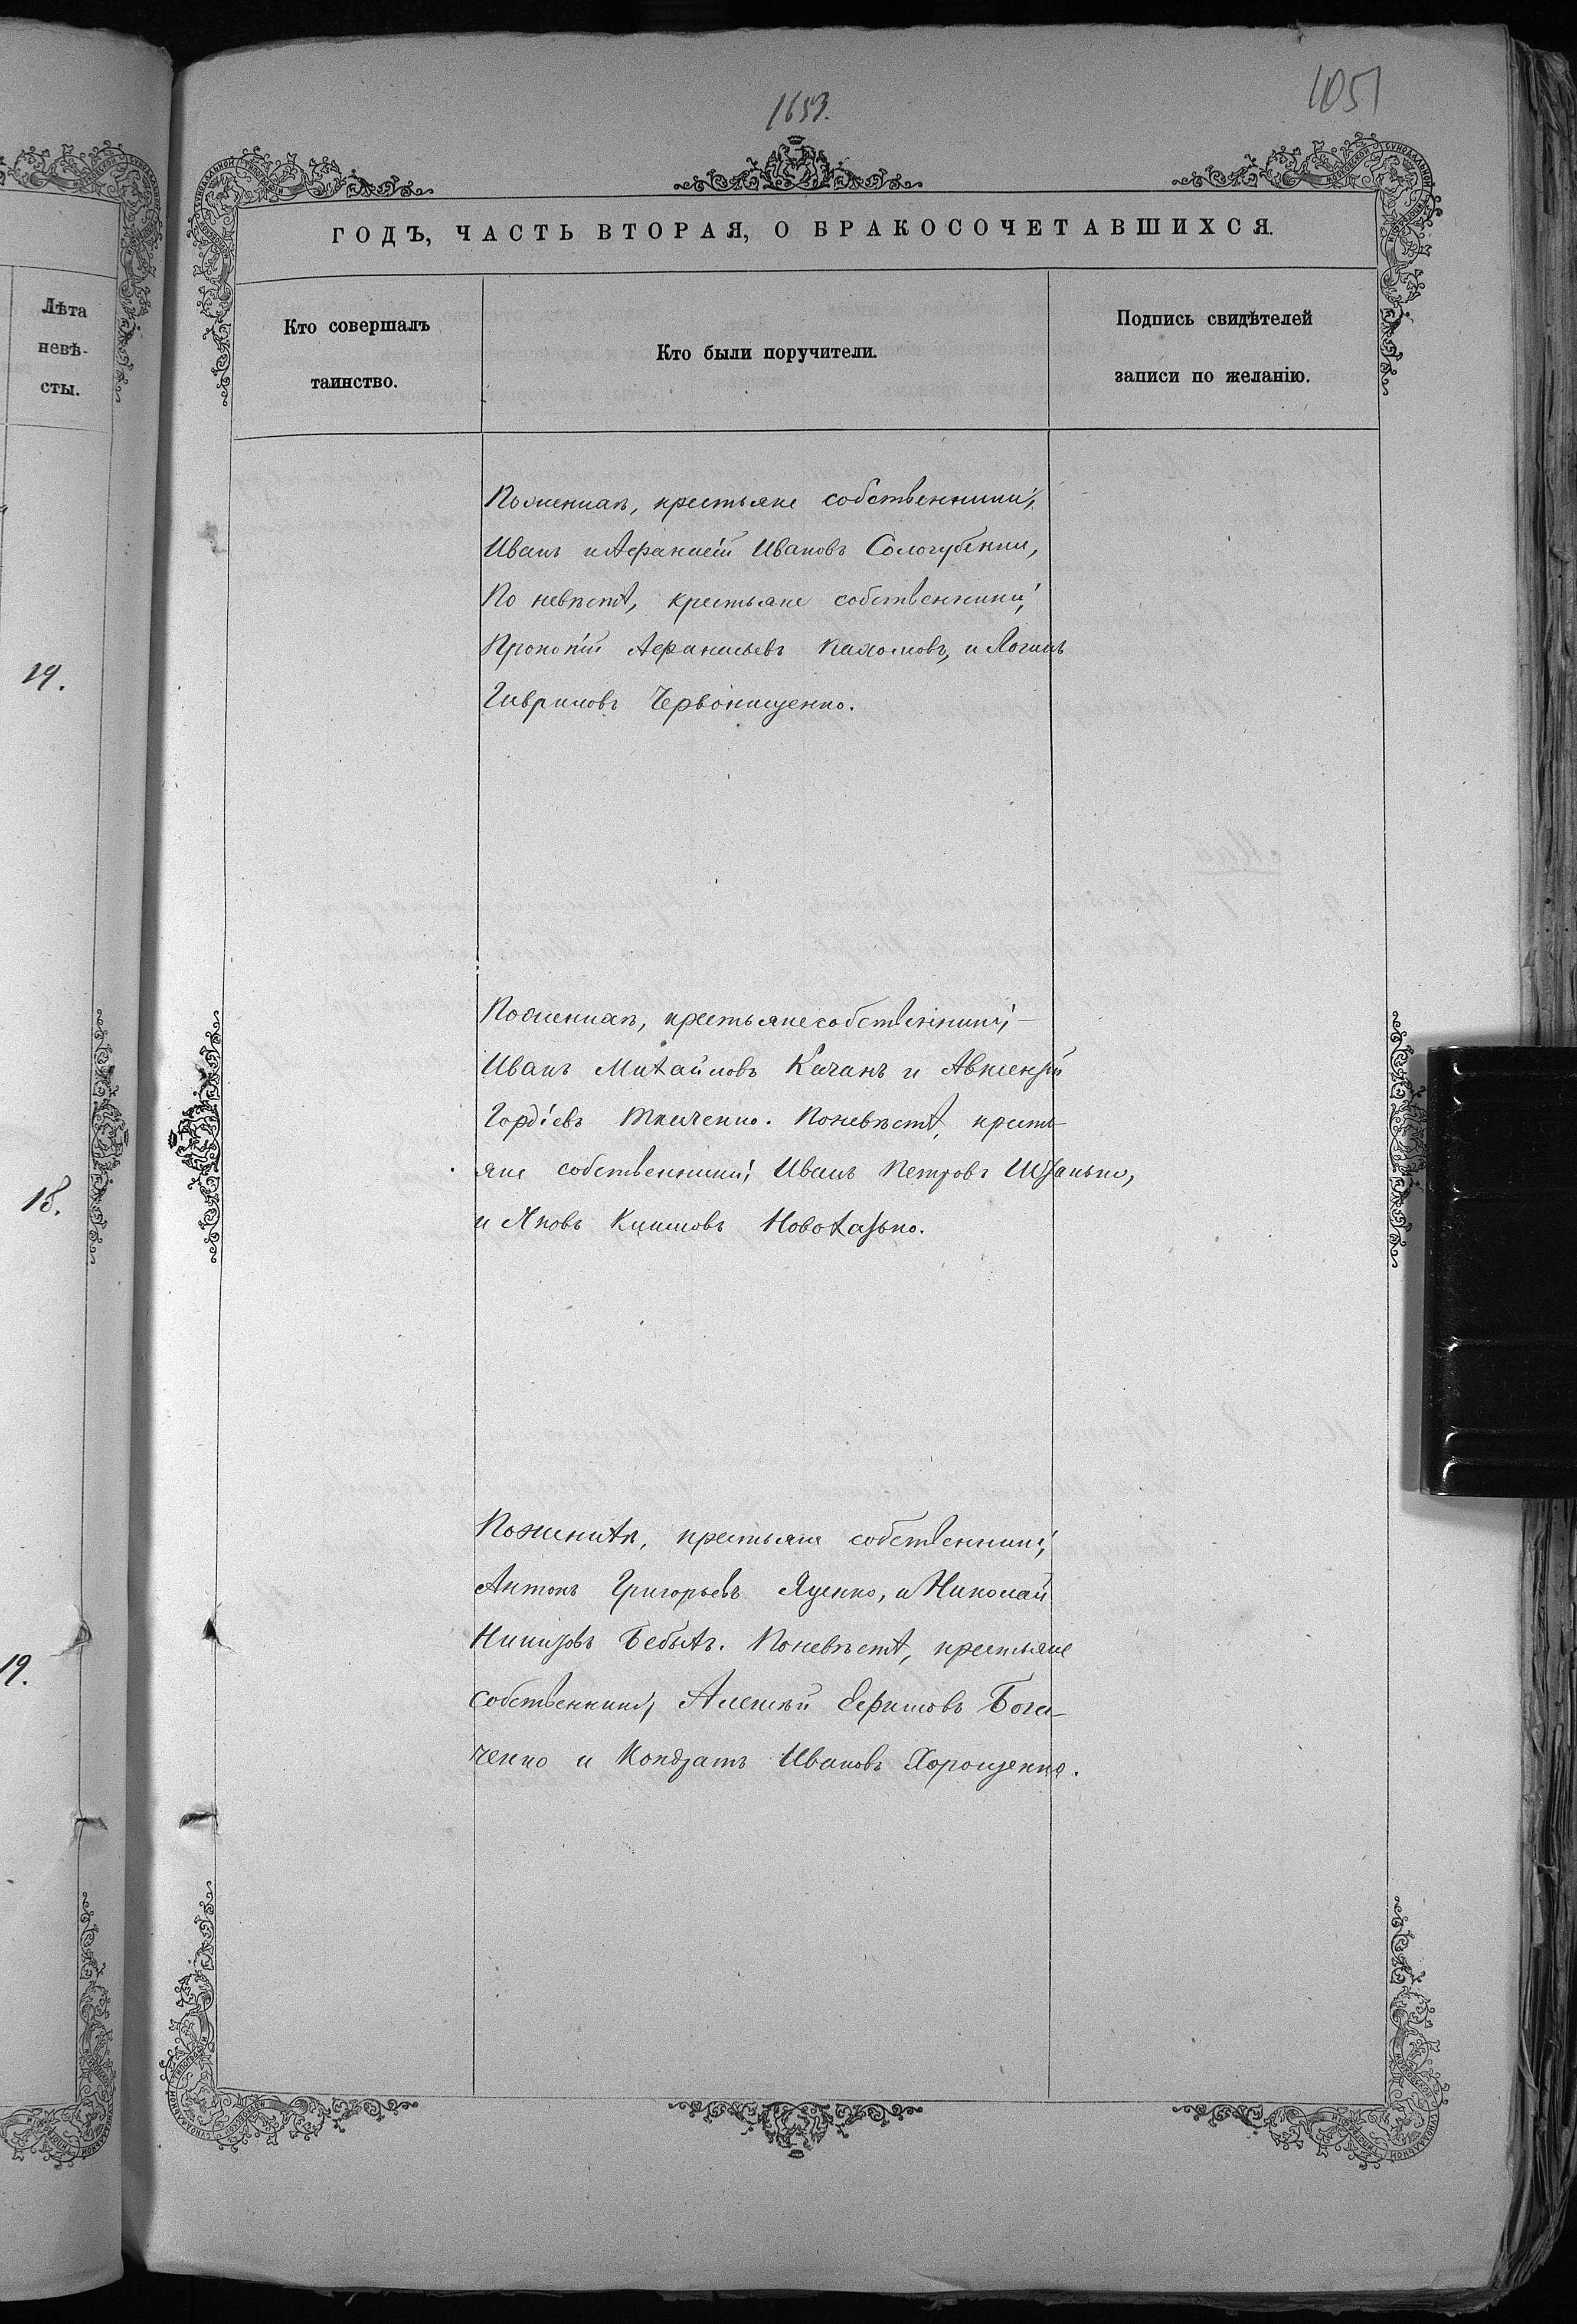 1653.
1051
ГОДЪ, ЧАСТЬ ВТОРАЯ, О БРАКОСОЧЕТАВШИХСЯ.
Лѣта
невѣ-
сты.
Кто совершалъ
таинство.
Кто были поручители.
Подпись свидѣтелей
записи по желанію.
По женихѣ, крестьяне собственники,
Иванъ и Афанасій Ивановъ Сологубенки,
По невѣстѣ, крестьяне собственники,
Прокопій Афанасьевъ Пахомовъ, и Логинъ
Гавриловъ Червонищенко.
19.
По женихѣ, крестьяне собственники, –
Иванъ Михайловъ Качанъ и Авксентій
Гордіевъ Ткаченко. По невѣстѣ, кресть-
яне собственники, Иванъ Петровъ Штанько,
и Яковъ Климовъ Новохатько.
18.
По женихѣ, крестьяне собственники,
Антонъ Григорьевъ Яценко, и Николай
Никитовъ Бебыхъ. По невѣстѣ, крестьяне
собственники, Алексѣй Ефимовъ Бога-
ченко и Кондратъ Ивановъ Хорощенко.
19.